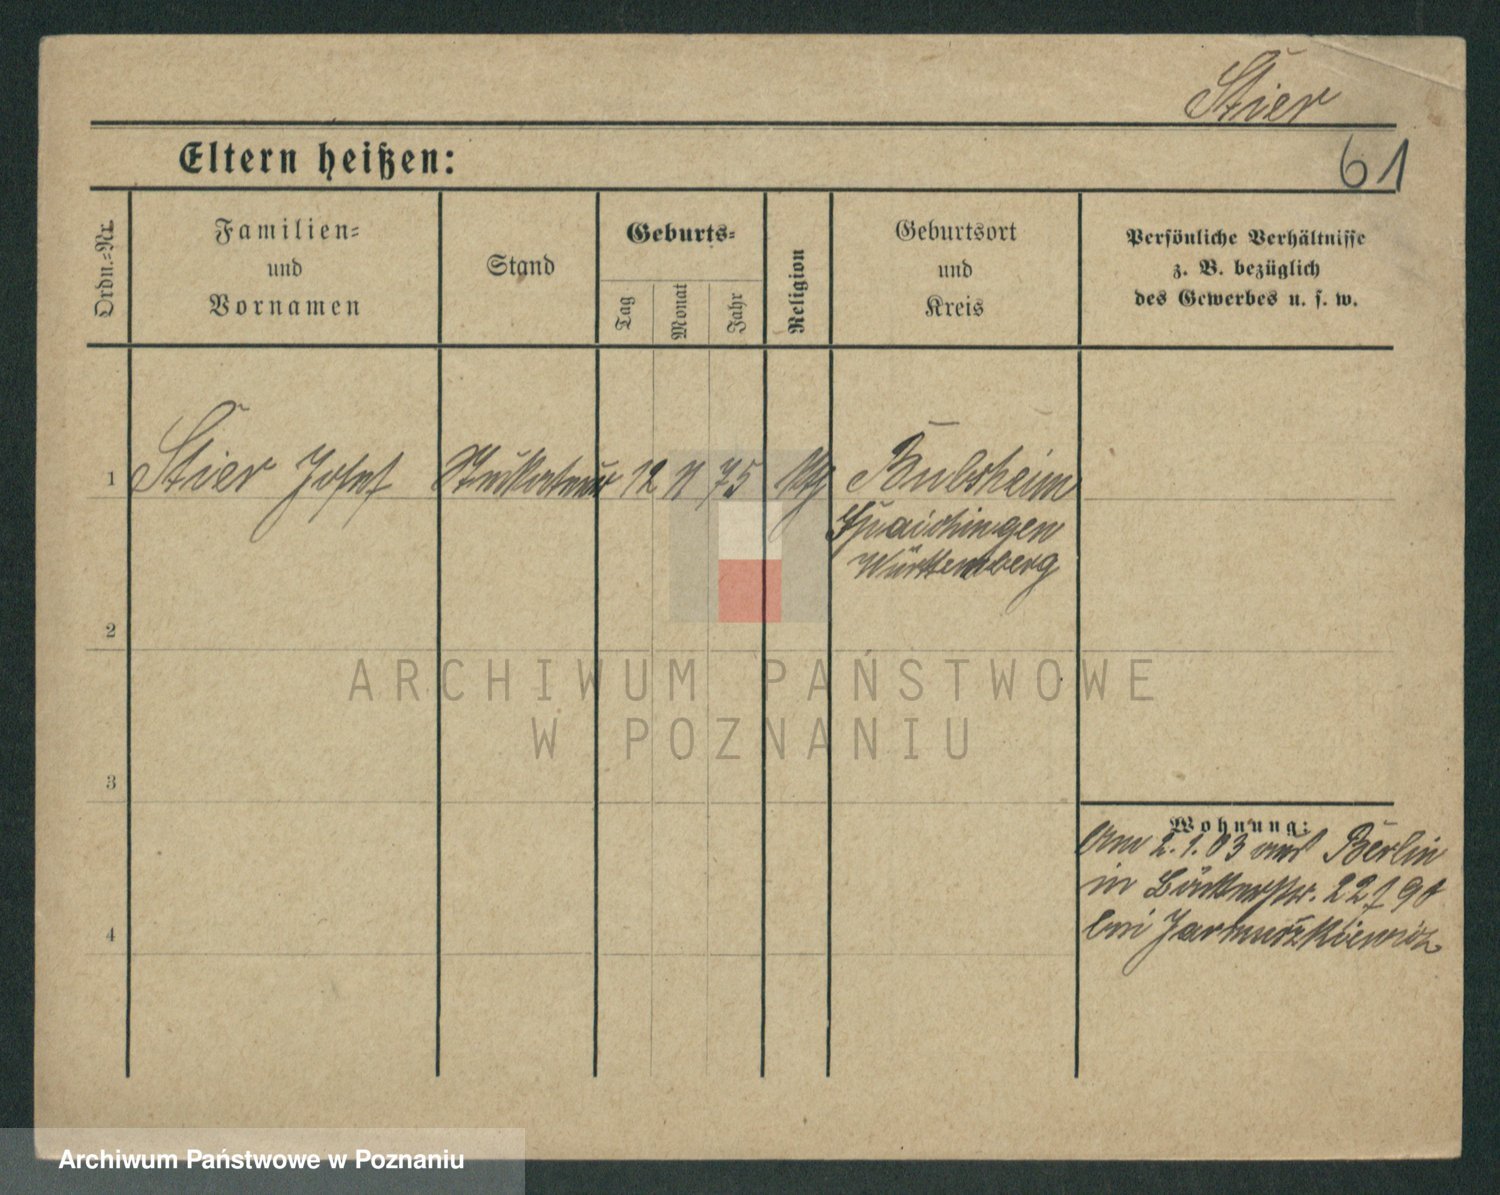 Stier
Eltern heißen:
61
Ordn.=Nr.
Familien=
und
Vornamen
Stand
Geburts=
Tag
Monat
Jahr
Religion
Geburtsort
und
Kreis
Persönliche Verhältnisse
z. B. bezüglich
des Gewerbes u. s. w.
1
Stier Josef
Stukateur
12
11
75
ktg
Bubsheim
Spaichingen
Württemberg
2
ARCHIWUM PAŃSTWOWE
W POZNANIU
3
Wohnung:
Am 2.1.03 aus Berlin
in 22
4
bei Jarmuszkiewicz
Archiwum Państwowe w Poznaniu